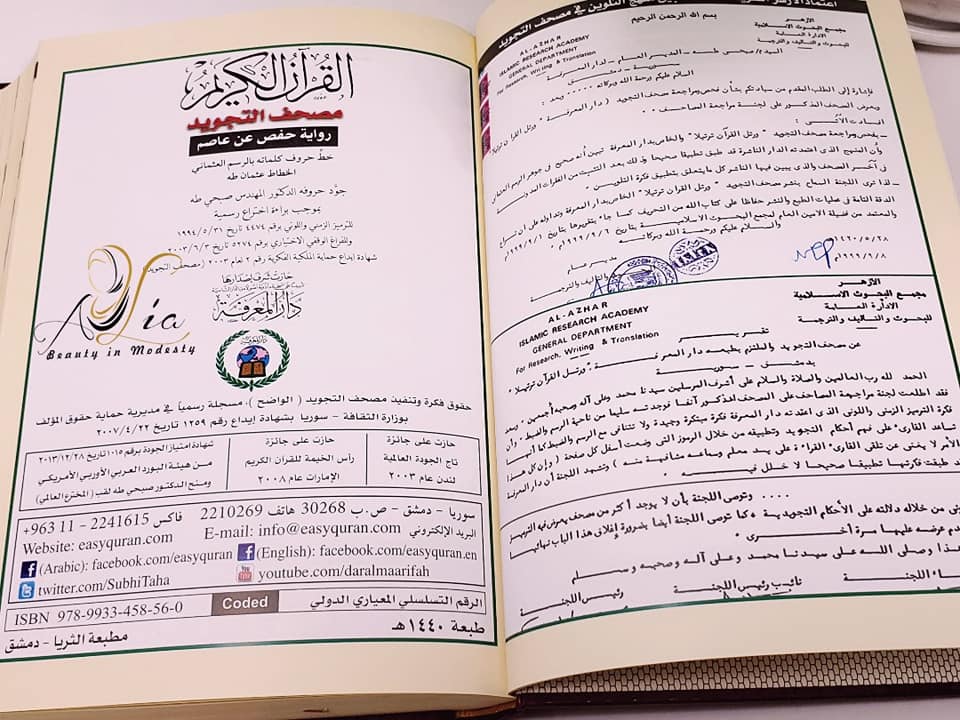 القرآن الكريم
مصحف التجويد
رواية حفص عن عاصم
خط حروف كلماته بالرسم العثماني
الخطاط عثمان طه
جوّد حروفه الدكتور المهندس صبحي طه
بموجب براءة اختراع رسمية
للترميز الزمني واللوني برقم ٤٤٧٤ تاريخ ١٩٩٤/٥/٣١
وللفراغ الوقفي الاختياري برقم ٥٢٧٤ تاريخ ٢٠٠٣/٦/٣
شهادة إيداع حماية الملكية الفكرية رقم ٢ لعام ٢٠١٣ (مصحف التجويد
حازت شرف إصدارها
دار المعرفة
Alia
Beauty in Modesty
حقوق فكرة وتنفيذ مصحف التجويد ( الواضح )، مسجلة رسمياً في مديرية حماية حقوق المؤلف
بوزارة الثقافة - سوريا بشهادة إيداع رقم ١٢٥٩ تاريخ ٢٠٠٧/٤/٢٢
حازت على جائزة
تاج الجودة العالمية
لندن عام ٢٠٠٣
حازت على جائزة
رأس الخيمة للقرآن الكريم
الإمارات عام ٢٠٠٨
شهادة امتياز الجودة رقم ٠١٥ تاريخ ٢٠١٣/١٢/٢٨
من هيئة البورد العربي الأوربي الأمريكي
ومنح الدكتور صبحي طه لقب (المخترع العالمي)
سوريا - دمشق - ص.ب 30268 هاتف 2210269 فاكس 2241615 - 11 963+
البريد الإلكتروني E-mail: info@easyquran.com Website: easyquran.com
(Arabic): facebook.com/easyquran (English): facebook.com/easyquran.en
twitter.com/SubhiTaha youtube.com/daralmaarifah
ISBN 978-9933-458-56-0 Coded الرقم التسلسلي المعياري الدولي
طبعة ١٤٤٠هـ مطبعة الثريا - دمشق
في مصحف التجويد
بسم الله الرحمن الرحيم
الأزهر
مجمع البحوث الاسلامية
الادارة العامة
للبحوث والتأليف والترجمة
AL-AZHAR
ISLAMIC RESEARCH ACADEMY
GENERAL DEPARTMENT
For Research, Writing & Translation
السيد / صبحى طه المدير العام لدار المعرفة
سورية - دمشق
السلام عليكم ورحمة الله وبركاته ..... وبعد :
فإشارة إلى الطلب المقدم من سيادتكم بشأن فحص ومراجعة مصحف التجويد ( دار المعرفة ) " ورتل القرآن ترتيلا "
وبعرض المصحف المذكور على لجنة مراجعة المصاحف
أفادت الآتى :
- بفحص ومراجعة مصحف التجويد " ورتل القرآن ترتيلا " والخاص بدار المعرفة تبين أنه صحيح فى جوهر الرسم العثمانى
وأن المنهج الذى اعتمدته الدار الناشرة قد طبق تطبيقا صحيحا وذلك بعد التثبت من الفقرات المدونة
فى آخر المصحف والذى يبين فيها الناشر كل ما يتعلق بتطبيق فكرة التلوين
- لذا ترى اللجنة السماح بنشر مصحف التجويد " ورتل القرآن ترتيلا " الخاص بدار المعرفة وتداوله على أن تراعى
الدقة التامة فى عمليات الطبع والنشر حفاظا على كتاب الله من التحريف كما جاء بتقريرها بتاريخ ١٩٩٩/٩/١م
والمعتمد من فضيلة الامين العام لمجمع البحوث الاسلامية بتاريخ ١٩٩٩/٩/٦م
والسلام عليكم ورحمة الله وبركاته
مدير عام
١٤٢٠/٥/٢٨
١٩٩٩/٩/٨م
الأزهر
مجمع البحوث الاسلامية
الادارة العامة
للبحوث والتأليف والترجمة
AL-AZHAR
ISLAMIC RESEARCH ACADEMY
GENERAL DEPARTMENT
For Research, Writing & Translation
تقرير
عن مصحف التجويد والملتزم بطبعه دار المعرفة " ورتل القرآن ترتيلا "
بدمشق - سورية
الحمد لله رب العالمين والصلاة والسلام على أشرف المرسلين سيدنا محمد وعلى آله وصحبه أجمعين - وبعد
فقد اطلعت لجنة مراجعة المصاحف على المصحف المذكور آنفا فوجدته سليما من ناحية الرسم والضبط
فكرة الترميز الزمنى واللونى الذى اعتمدته دار المعرفة فكرة مبتكرة وجيدة ولا تتنافى مع الرسم والضبط
القارئ على فهم أحكام التجويد وتطبيقه من خلال الرموز التى وضعت أسفل كل صفحة
الأمر لا يغنى عن تلقى القارئ القراءة على يد معلم وسماعه مشافهة منه
طبقت فكرتها تطبيقا صحيحا لا خلل فيه
وتوصى اللجنة بأن لا يوجد أكثر من مصحف
من خلاله دلالته على الأحكام التجويدية كما توصى اللجنة أيضا بضرورة إغلاق هذا الباب نهائيا
عرضه عليها مرة أخرى
هذا وصلى الله على سيدنا محمد وعلى آله وصحبه وسلم
نائب رئيس اللجنة رئيس اللجنة